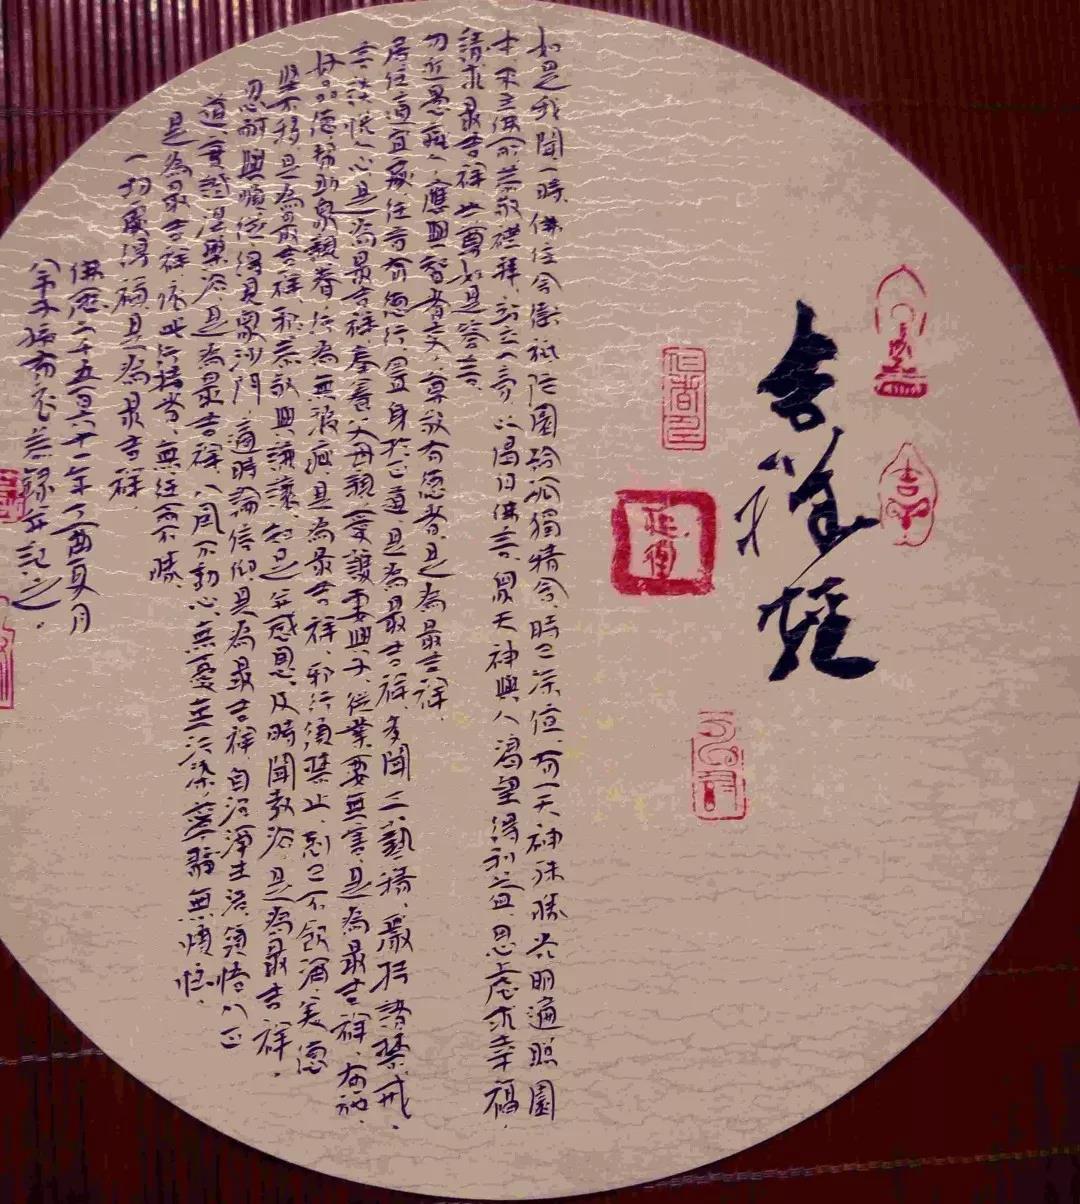 吉祥經
如是我聞一時。佛住舍衛祇陀園給孤獨精舍。時已深夜有一天神殊勝光明遍照園
中來至佛前恭敬禮拜站立一旁以偈白佛言。眾天神與人渴望得利益思慮求幸福。
請求最吉祥世尊如是答言。
勿近愚痴人應與智者交尊敬有德者是為最吉祥。
居住適宜處往昔有德行置身於正道是為最吉祥多聞工藝精嚴持諸禁戒。
言談悅人心是為最吉祥奉養父母親愛護妻與子從業要無害是為最吉祥布施
好品德幫助眾親眷行為無瑕疵是為最吉祥邪行須禁止克己不飲酒美德
堅不移是為最吉祥恭敬與謙讓知足并感恩及時聞教法是為最吉祥。
忍耐與順從得見眾沙門適時論信仰是為最吉祥自治淨生活領悟八正
道實證涅槃法是為最吉祥八風不動心無憂無污染寧靜無煩惱。
是為最吉祥依此行持者無往而不勝
一切處得福是為最吉祥。
佛歷二千五十一年丁酉夏月
弟子布衣錄并記之。
吉